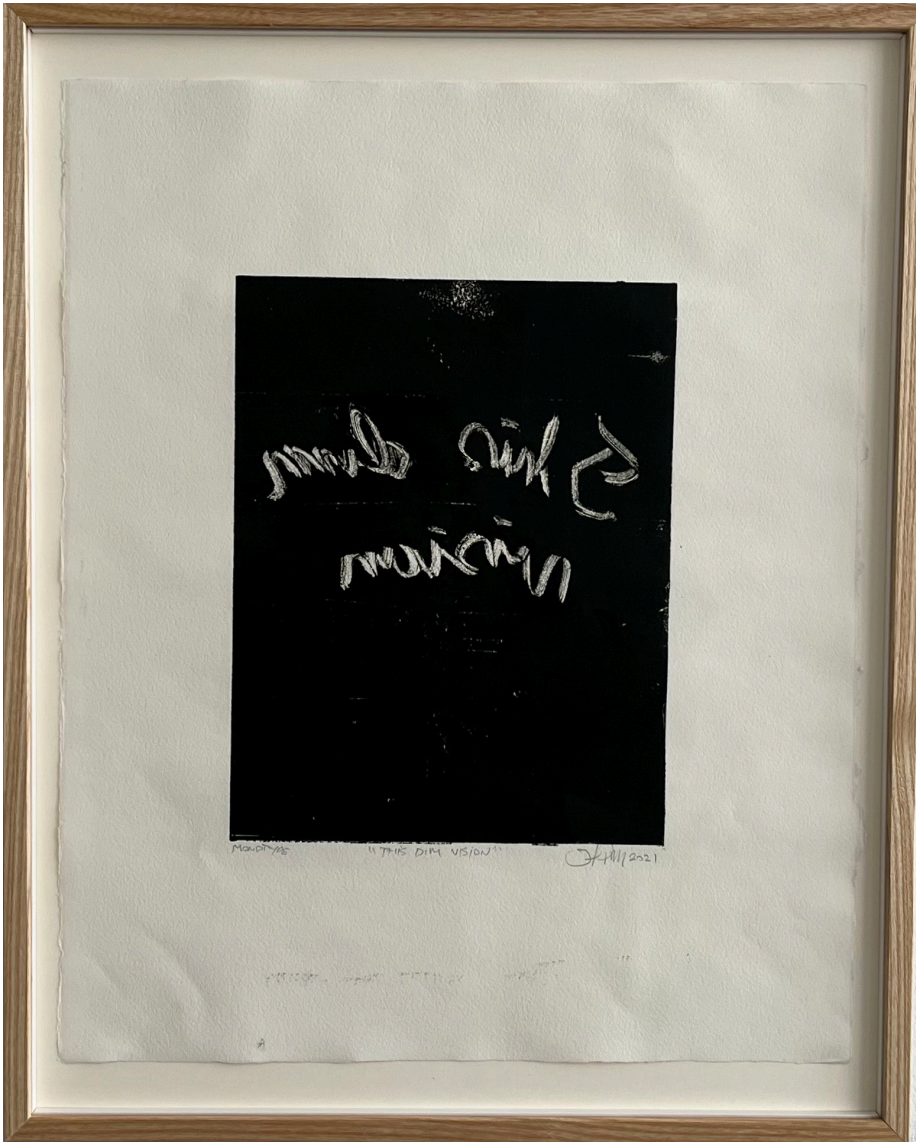 This dim
vision
MONOTYPE "THIS DIM VISION" 2021
A